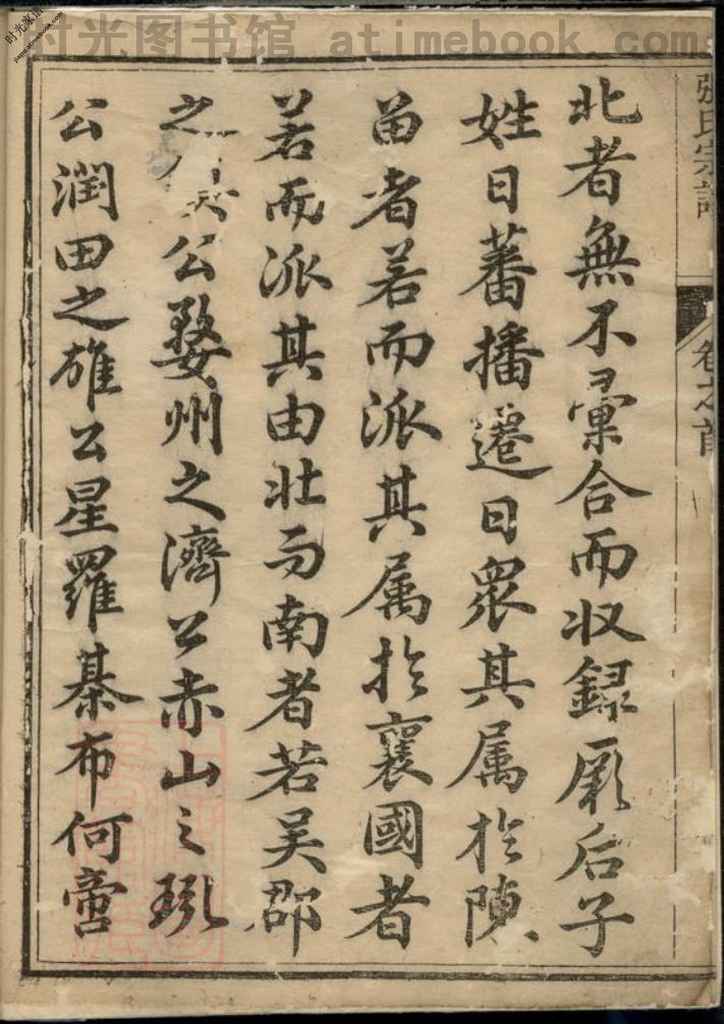 时光图书馆 atimebook.com
張氏宗譜
卷之首
北者無不彙合而収録厥后子
姓日蕃播遷日衆其属扵陳
畱者若而派其属扵襄國者
若而派其由北而南者若吴郡
之 公婺州之濟公赤山之珎
公潤田之雄公星羅棊布何啻